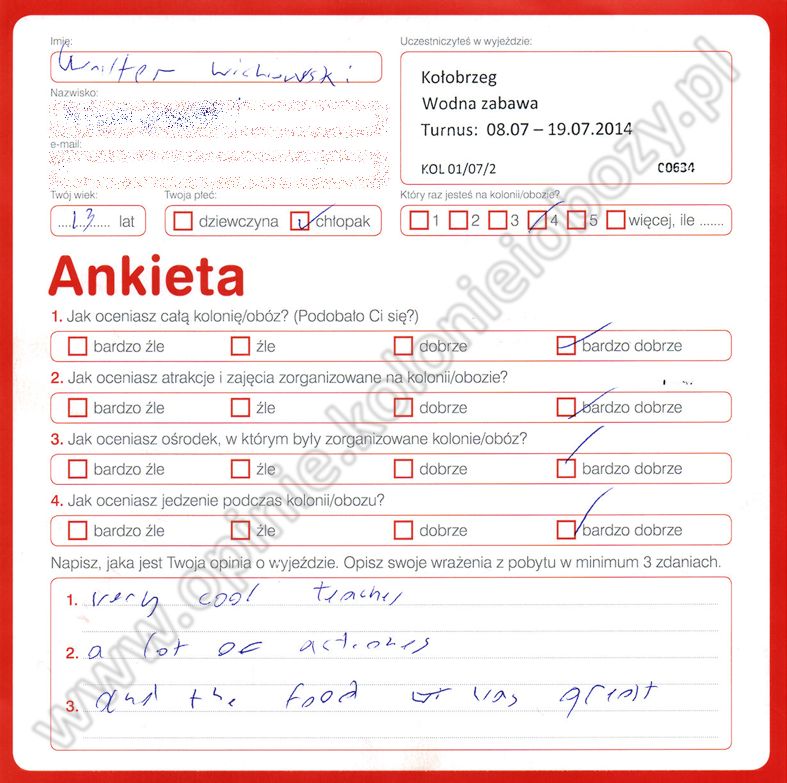 Imię:
Uczestniczyłeś w wyjeździe:
Walter Wichowski
Kołobrzeg
Wodna zabawa
Turnus: 08.07 – 19.07.2014
KOL 01/07/2 C0634
Nazwisko:
e-mail:
Twój wiek: Twoja płeć: Który raz jesteś na kolonii/obozie?
....13...... lat dziewczyna chłopak 1 2 3 4 5 więcej, ile .......
Ankieta
1. Jak oceniasz całą kolonię/obóz? (Podobało Ci się?)
bardzo źle źle dobrze bardzo dobrze
2. Jak oceniasz atrakcje i zajęcia zorganizowane na kolonii/obozie?
bardzo źle źle dobrze bardzo dobrze
3. Jak oceniasz ośrodek, w którym były zorganizowane kolonie/obóz?
bardzo źle źle dobrze bardzo dobrze
4. Jak oceniasz jedzenie podczas kolonii/obozu?
bardzo źle źle dobrze bardzo dobrze
Napisz, jaka jest Twoja opinia o wyjeździe. Opisz swoje wrażenia z pobytu w minimum 3 zdaniach.
1. very cool teacher
2. a lot of
3. and the food was great
www.opinie.kolonieiobozy.pl